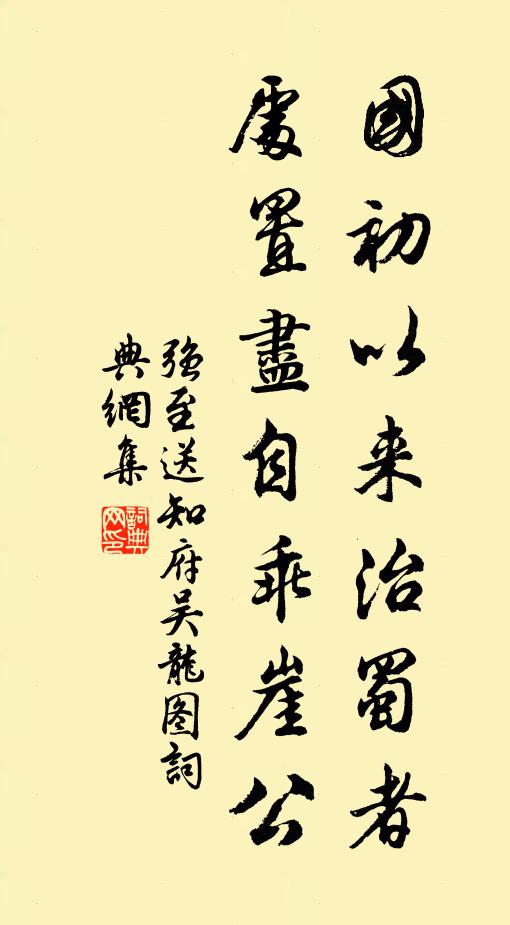 國初以来治蜀者
處置盡自乖崖公
強至送知府吴龍图詞
典網集
詞典网印